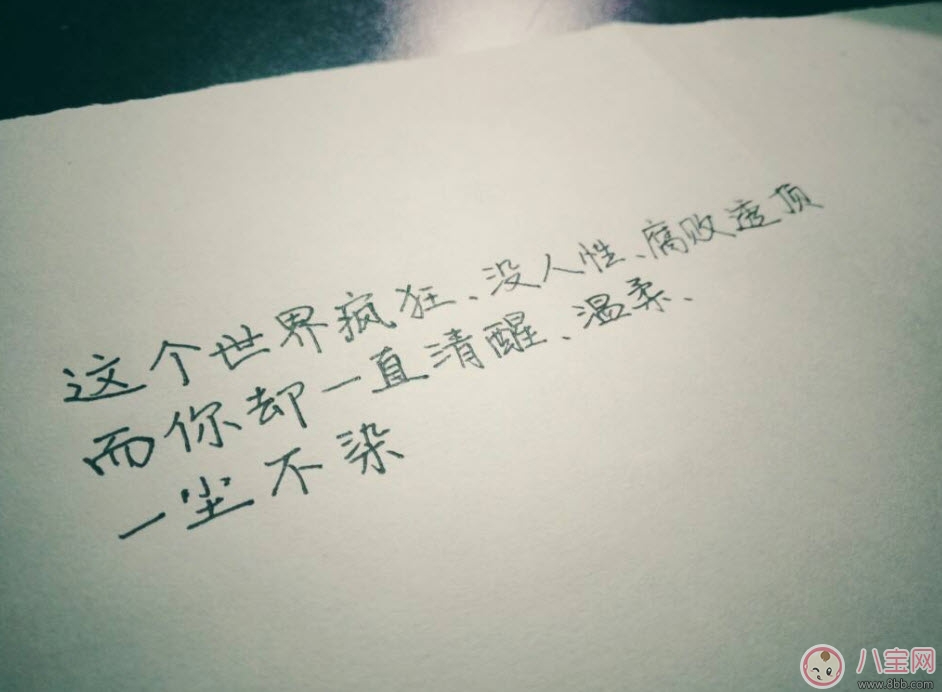 这个世界疯狂、没人性、腐败透顶
而你却一直清醒、温柔、
一尘不染
八宝网
www.8bb.com